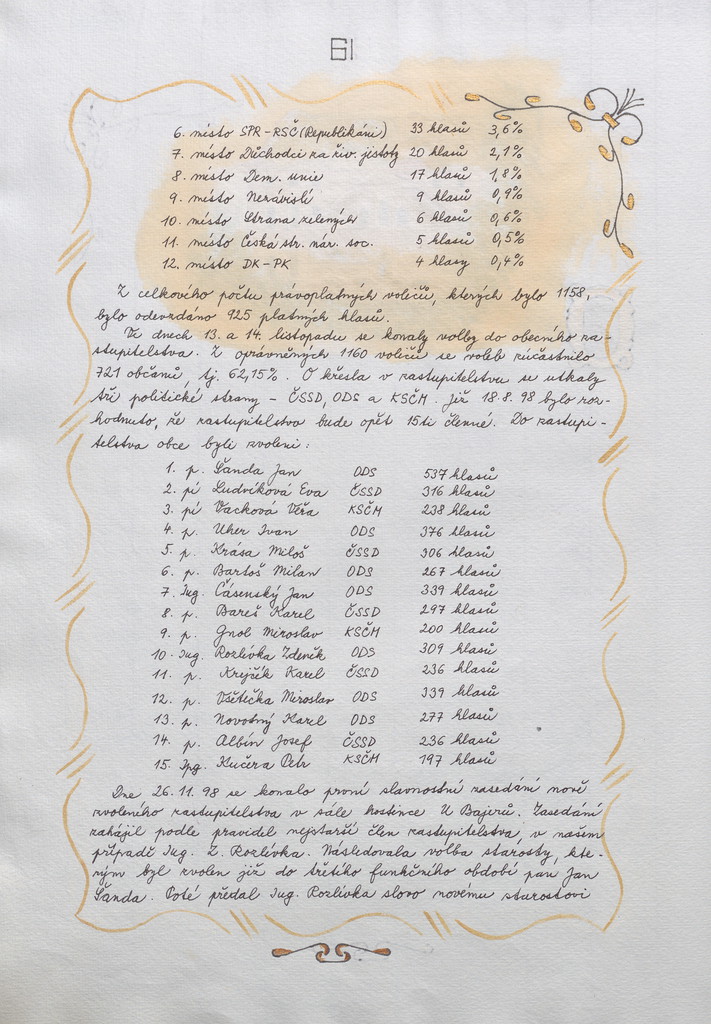 61
6. místo SPR-RSČ (Republikáni) 33 hlasů 3,6%
7. místo Důchodci za živ. jistoty 20 hlasů 2,1%
8. místo Dem. unie 17 hlasů 1,8%
9. místo Nezávislí 9 hlasů 0,9%
10. místo Strana zelených 6 hlasů 0,6%
11. místo Česká str. nár. soc. 5 hlasů 0,5%
12. místo DK-PK 4 hlasy 0,4%
Z celkového počtu právoplatných voličů, kterých bylo 1158,
bylo odevzdáno 925 platných hlasů.
Ve dnech 13. a 14. listopadu se konaly volby do obecního za-
stupitelstva. Z oprávněných 1160 voličů se voleb zúčastnilo
721 občanů, tj. 62,15%. O křesla v zastupitelstvu se utkaly
tři politické strany - ČSSD, ODS a KSČM. Již 18.8.98 bylo roz-
hodnuto, že zastupitelstvo bude opět 15ti členné. Do zastupi-
telstva obce byli zvoleni:
1. p. Šanda Jan ODS 537 hlasů
2. pí Ludvíková Eva ČSSD 316 hlasů
3. pí Vacková Věra KSČM 238 hlasů
4. p. Uher Ivan ODS 376 hlasů
5. p. Krása Miloš ČSSD 306 hlasů
6. p. Bartoš Milan ODS 267 hlasů
7. Ing. Čásenský Jan ODS 339 hlasů
8. p. Bareš Karel ČSSD 297 hlasů
9. p. Gnol Miroslav KSČM 200 hlasů
10. Ing. Rozlívka Zdeněk ODS 309 hlasů
11. p. Krejčík Karel ČSSD 236 hlasů
12. p. Všetička Miroslav ODS 339 hlasů
13. p. Novotný Karel ODS 277 hlasů
14. p. Albín Josef ČSSD 236 hlasů
15. Ing. Kučera Petr KSČM 197 hlasů
Dne 26.11.98 se konalo první slavnostní zasedání nově
zvoleného zastupitelstva v sále hostince U Bajerů. Zasedání
zahájil podle pravidel nejstarší člen zastupitelstva, v našem
případě Ing. Z. Rozlívka. Následovala volba starosty, kte-
rým byl zvolen již do třetího funkčního období pan Jan
Šanda. Poté předal Ing. Rozlívka slovo novému starostovi